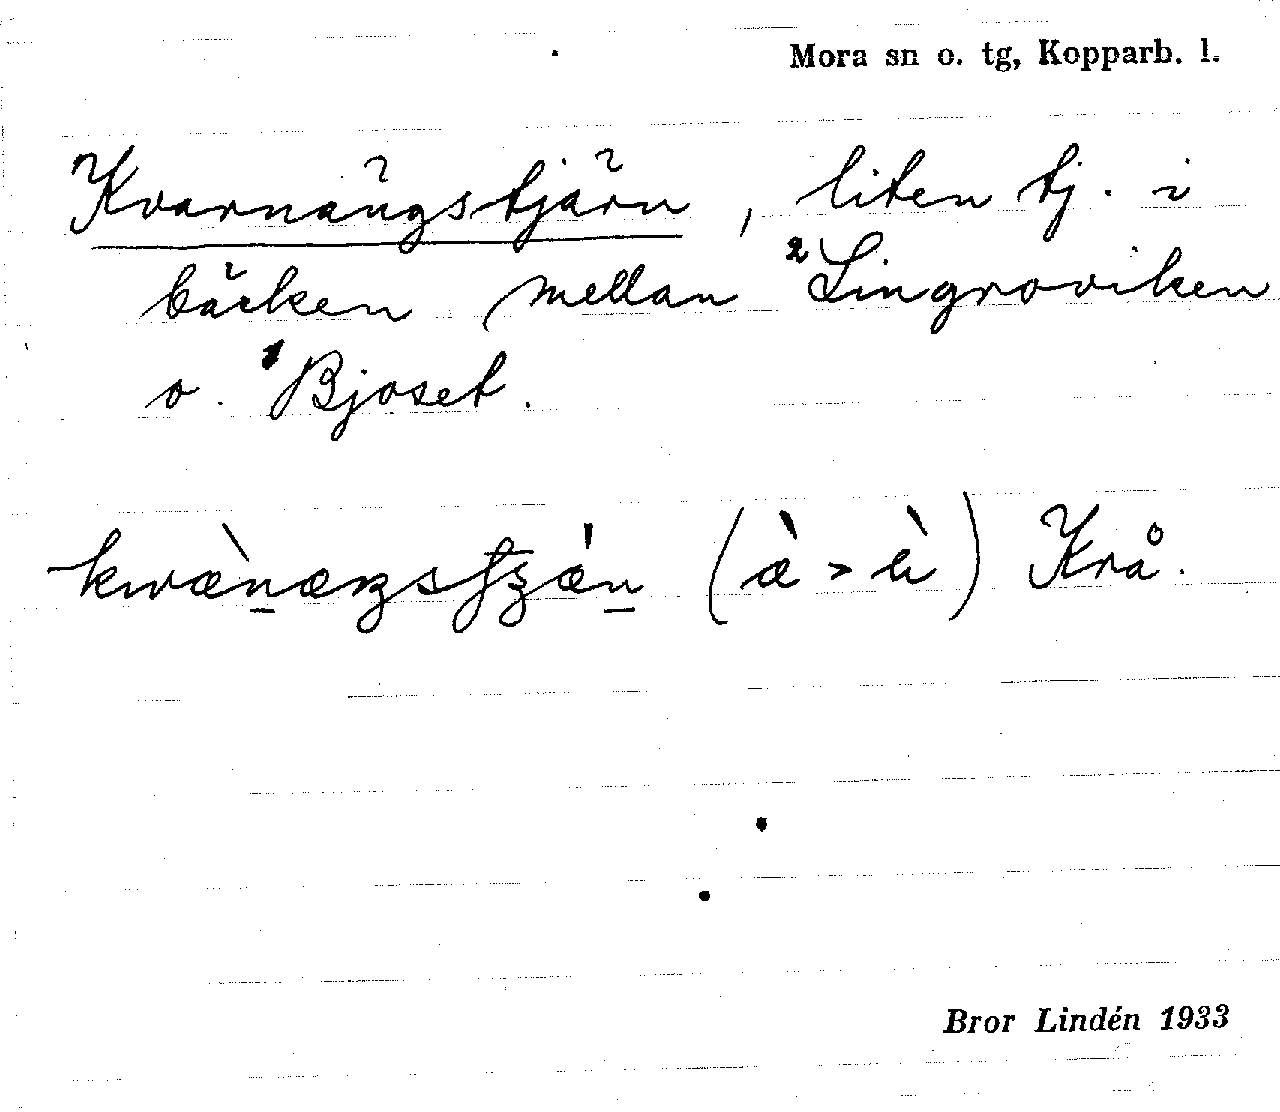 Mora sn o. tg, Kopparb. l.
Kvarnängstjärn, liten tj. i
bäcken mellan ²Lingroviken
o. ¹Bjoset.
(æ̀ > ...̀) Krå.
Bror Lindén 1933